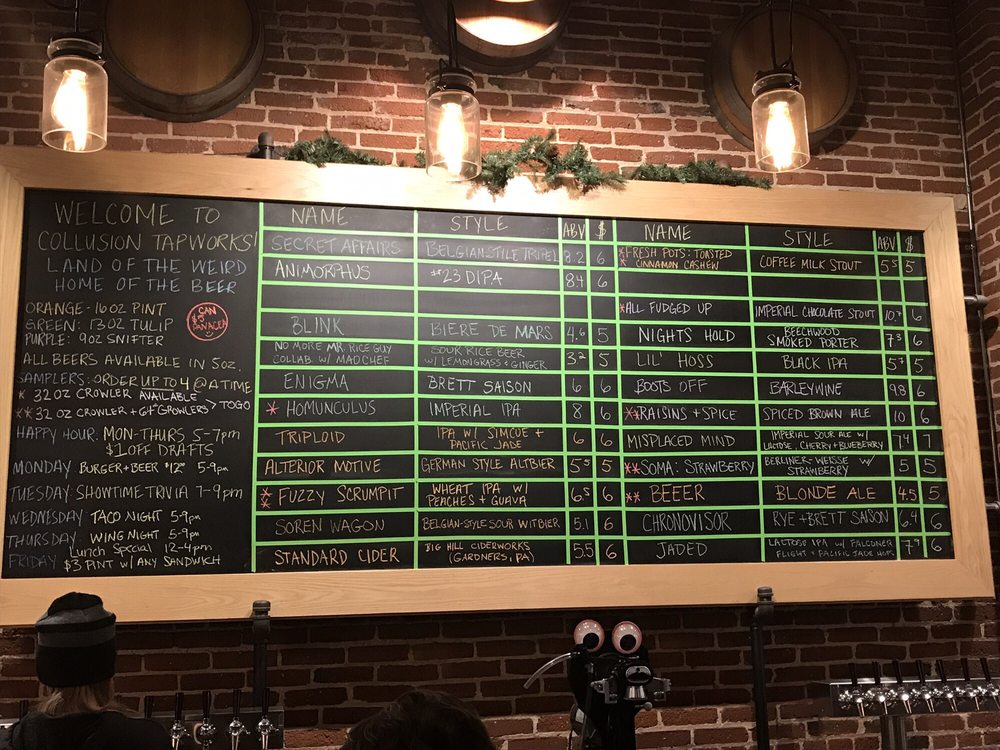 WELCOME TO
COLLUSION TAPWORKS!
LAND OF THE WEIRD
HOME OF THE BEER
ORANGE - 16 OZ PINT
GREEN: 13 OZ TULIP
PURPLE: 9 OZ SNIFTER
CAN
PANACEA
ALL BEERS AVAILABLE IN 5 OZ.
SAMPLERS: ORDER UP TO 4 @ A TIME
* 32 OZ CROWLER AVAILABLE
** 32 OZ CROWLER + 64oz GROWLERS > TO GO
HAPPY HOUR: MON-THURS 5-7pm
$1 OFF DRAFTS
MONDAY BURGER + BEER $12 5-9pm
TUESDAY: SHOWTIME TRIVIA 7-9pm
WEDNESDAY TACO NIGHT 5-9pm
THURSDAY: WING NIGHT 5-9pm
Lunch Special 12-4pm
FRIDAY $3 PINT W/ ANY SANDWICH
NAME STYLE ABV $
SECRET AFFAIRS BELGIAN STYLE TRIPEL 8.2 6
ANIMORPHUS #23 DIPA 8.4 6
BLINK BIERE DE MARS 4.6 5
NO MORE MR. RICE GUY
COLLAB W/ MAD CHEF
SOUR RICE BEER
W/ LEMONGRASS + GINGER
3.2 5
ENIGMA BRETT SAISON 6 6
* HOMUNCULUS IMPERIAL IPA 8 6
TRIPLOID
IPA W/ SIMCOE +
PACIFIC JADE
6 6
ALTERIOR MOTIVE GERMAN STYLE ALTBIER 5.5 5
** FUZZY SCRUMPIT
WHEAT IPA W/
PEACHES + GUAVA
6.5 6
SOREN WAGON BELGIAN-STYLE SOUR WITBIER 5.1 6
STANDARD CIDER
BIG HILL CIDERWORKS
(GARDNERS, PA)
5.5 6
NAME STYLE ABV $
** FRESH POTS: TOASTED
CINNAMON CASHEW
COFFEE MILK STOUT 5.5 5
*ALL FUDGED UP IMPERIAL CHOCOLATE STOUT 6
NIGHTS HOLD
BEECHWOOD
SMOKED PORTER
7.3 6
LIL' HOSS BLACK IPA 5.7 5
BOOTS OFF BARLEYWINE 9.8 6
**RAISINS + SPICE SPICED BROWN ALE 10 6
MISPLACED MIND
IMPERIAL SOUR ALE W/
LACTOSE, CHERRY + BLUEBERRY
7.4 7
**SOMA: STRAWBERRY
BERLINER-WEISSE W/
STRAWBERRY
5 5
** BEEER BLONDE ALE 4.5 5
CHRONOVISOR RYE + BRETT SAISON 6.4 6
JADED
LACTOSE IPA W/ FALCONER
FLIGHT + PACIFIC JADE HOPS
7.9 6